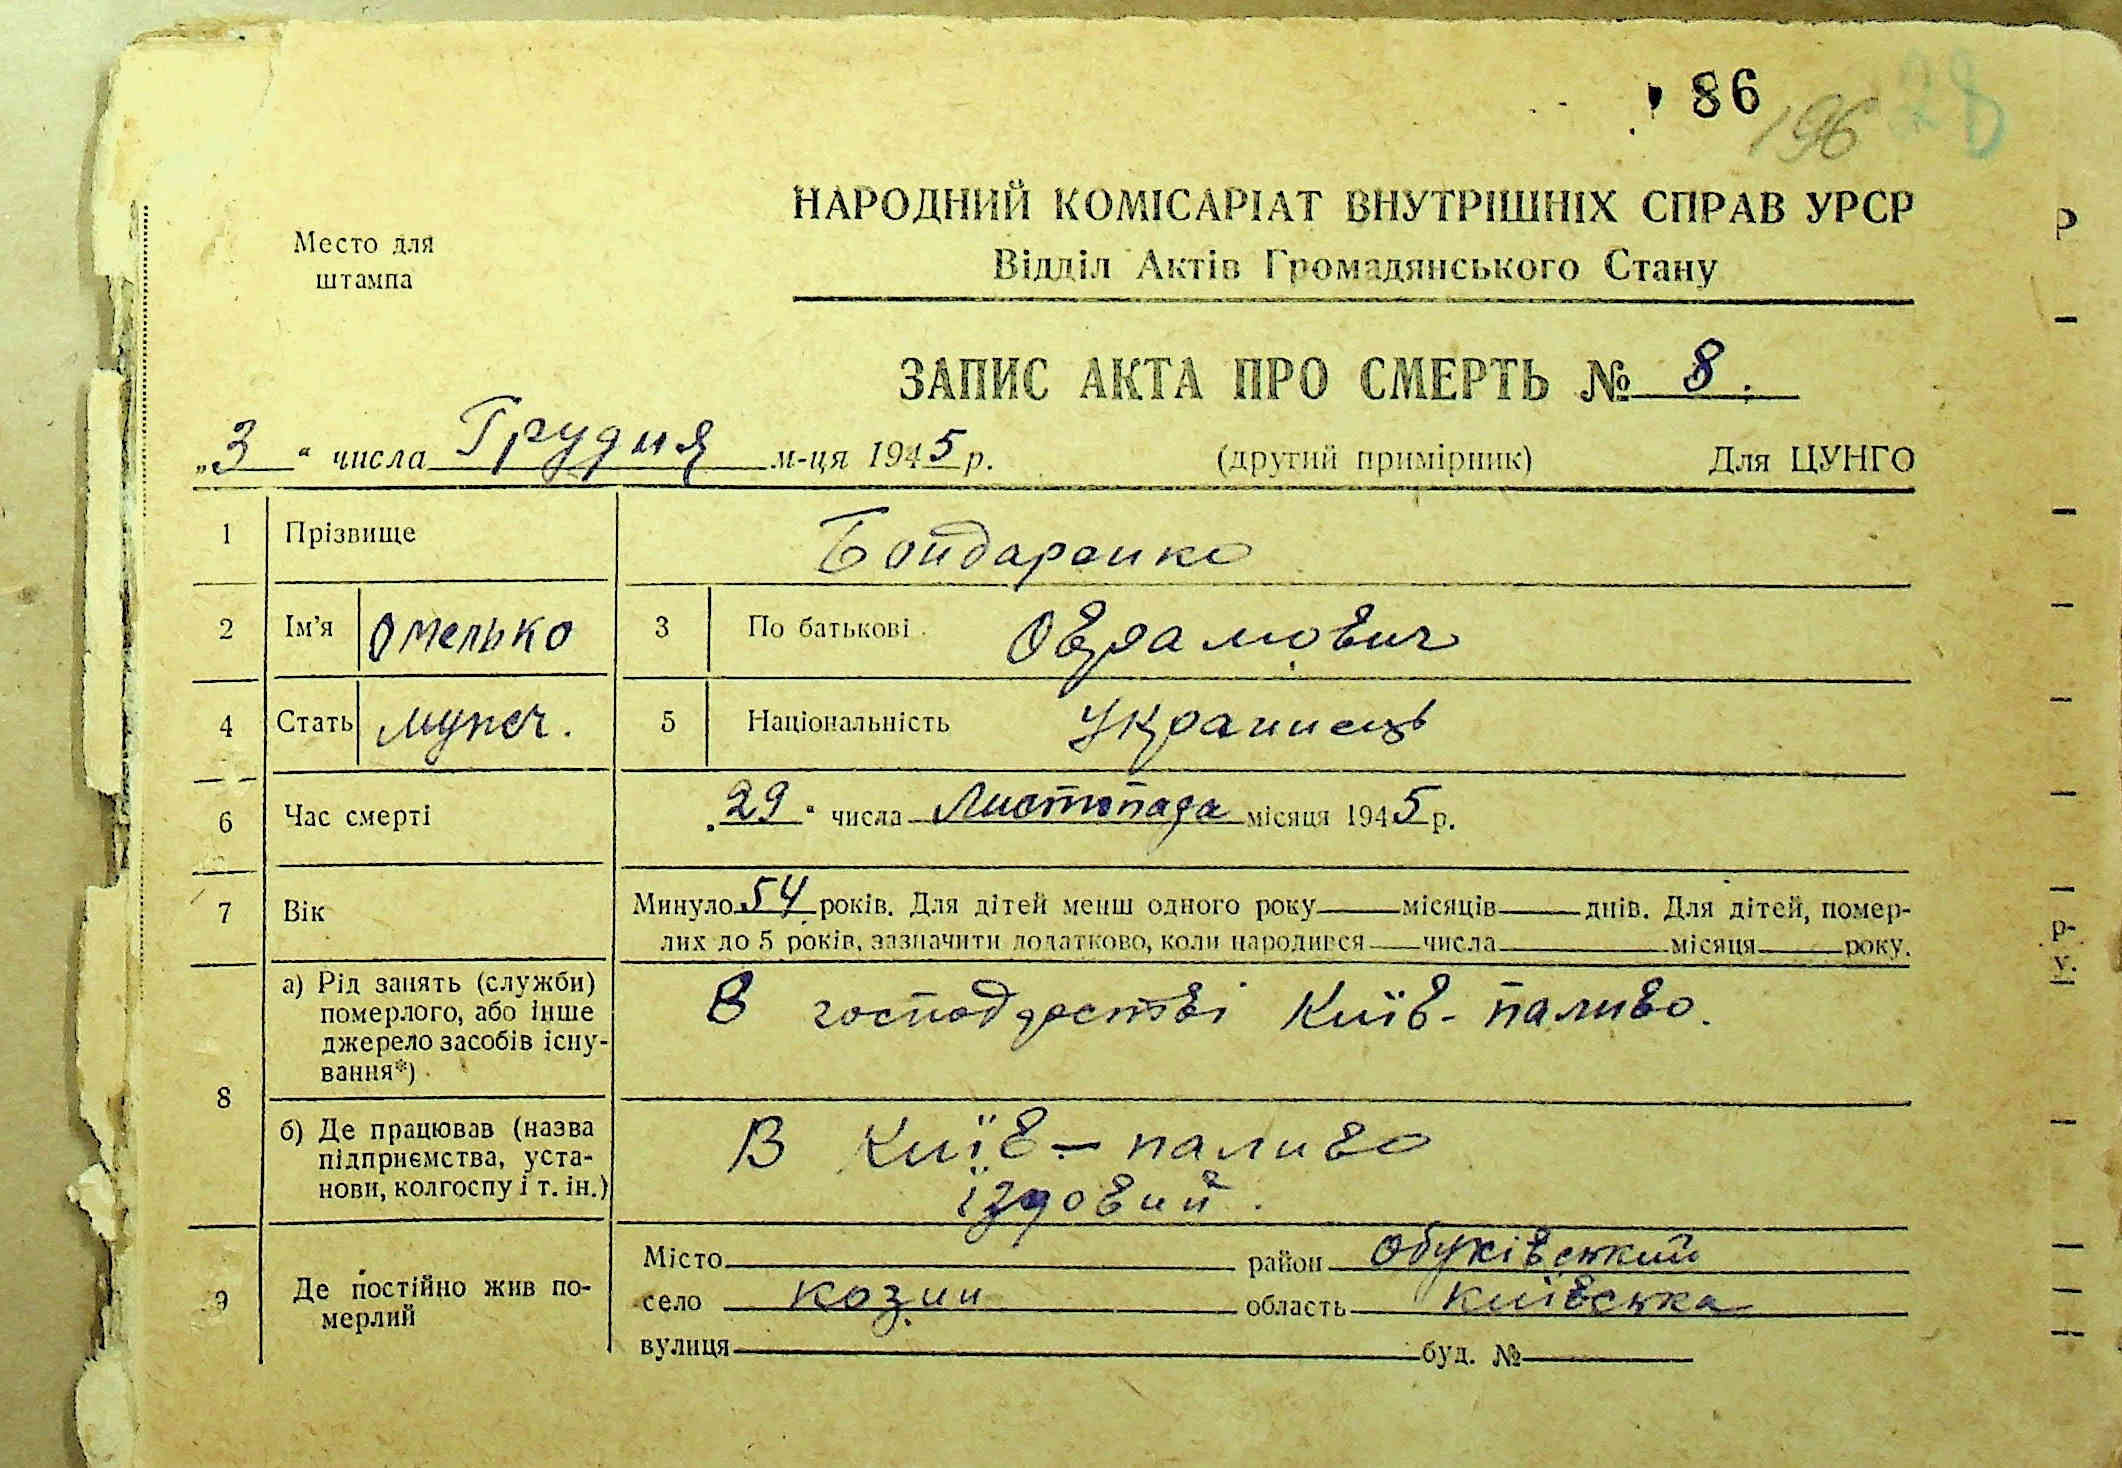 86
196 28
НАРОДНИЙ КОМІСАРІАТ ВНУТРІШНІХ СПРАВ УРСР
Відділ Актів Громадянського Стану
Место для
штампа
ЗАПИС АКТА ПРО СМЕРТЬ № 8.
„3“ числа Грудня м-ця 1945 р. (другий примірник) Для ЦУНГО
1 Прізвище Бондаренко
2 Ім’я Омелько 3 По батькові Оврамович
4 Стать мужч. 5 Національність Украинець
6 Час смерті „29“ числа Листопада місяця 1945 р.
7 Вік Минуло 54 років. Для дітей менш одного року місяців днів. Для дітей, помер-
лих до 5 років, зазначити додатково, коли народився числа місяця року.
8 а) Рід занять (служби)
померлого, або інше
джерело засобів існу-
вання*)
В господарстві Київ-паливо.
б) Де працював (назва
підприємства, уста-
нови, колгоспу і т. ін.)
В Київ-паливо
їздовий.
9 Де постійно жив по-
мерлий
Місто район Обухівський
село Козин область Київська
вулиця буд. №